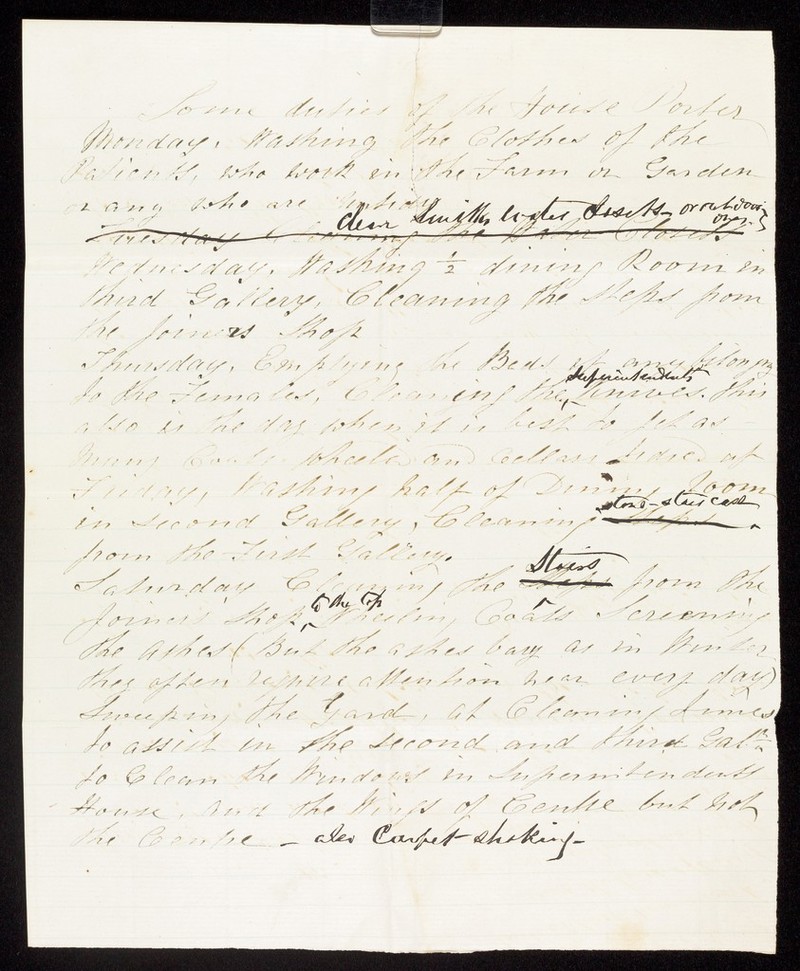 Some duties of the House Porter
Monday, Washing the Clothes of the
Patients, who work in the Farm or Garden
or any who are
clear Smiths water closets or outdoor
Tuesday Cleaning the Water Closets
Wednesday, Washing ½ dining Room in
third Gallery, Cleaning the steps from
the Joiners Shop
Thursday, Emptying the Beds of any belonging
superintendents
to the Females, Cleaning the knives. This
also is the day when it is best to get as
many Coals wheeled and
Friday, Washing half of Dining Room
stone-stair case
in Second Gallery, Cleaning steps
from the First Gallery.
Stairs
Saturday Cleaning the steps from the
to the top
Joiners Shop Coals Screening
the ashes (But the ashes vary as in Winter
they often require attention near every day)
Sweeping the Yard, at Cleaning times
to assist in the second and third Gal
to Clean the Windows in Superintendents
House, and the Wings of Centre but not
the Centre - also Carpet shaking -